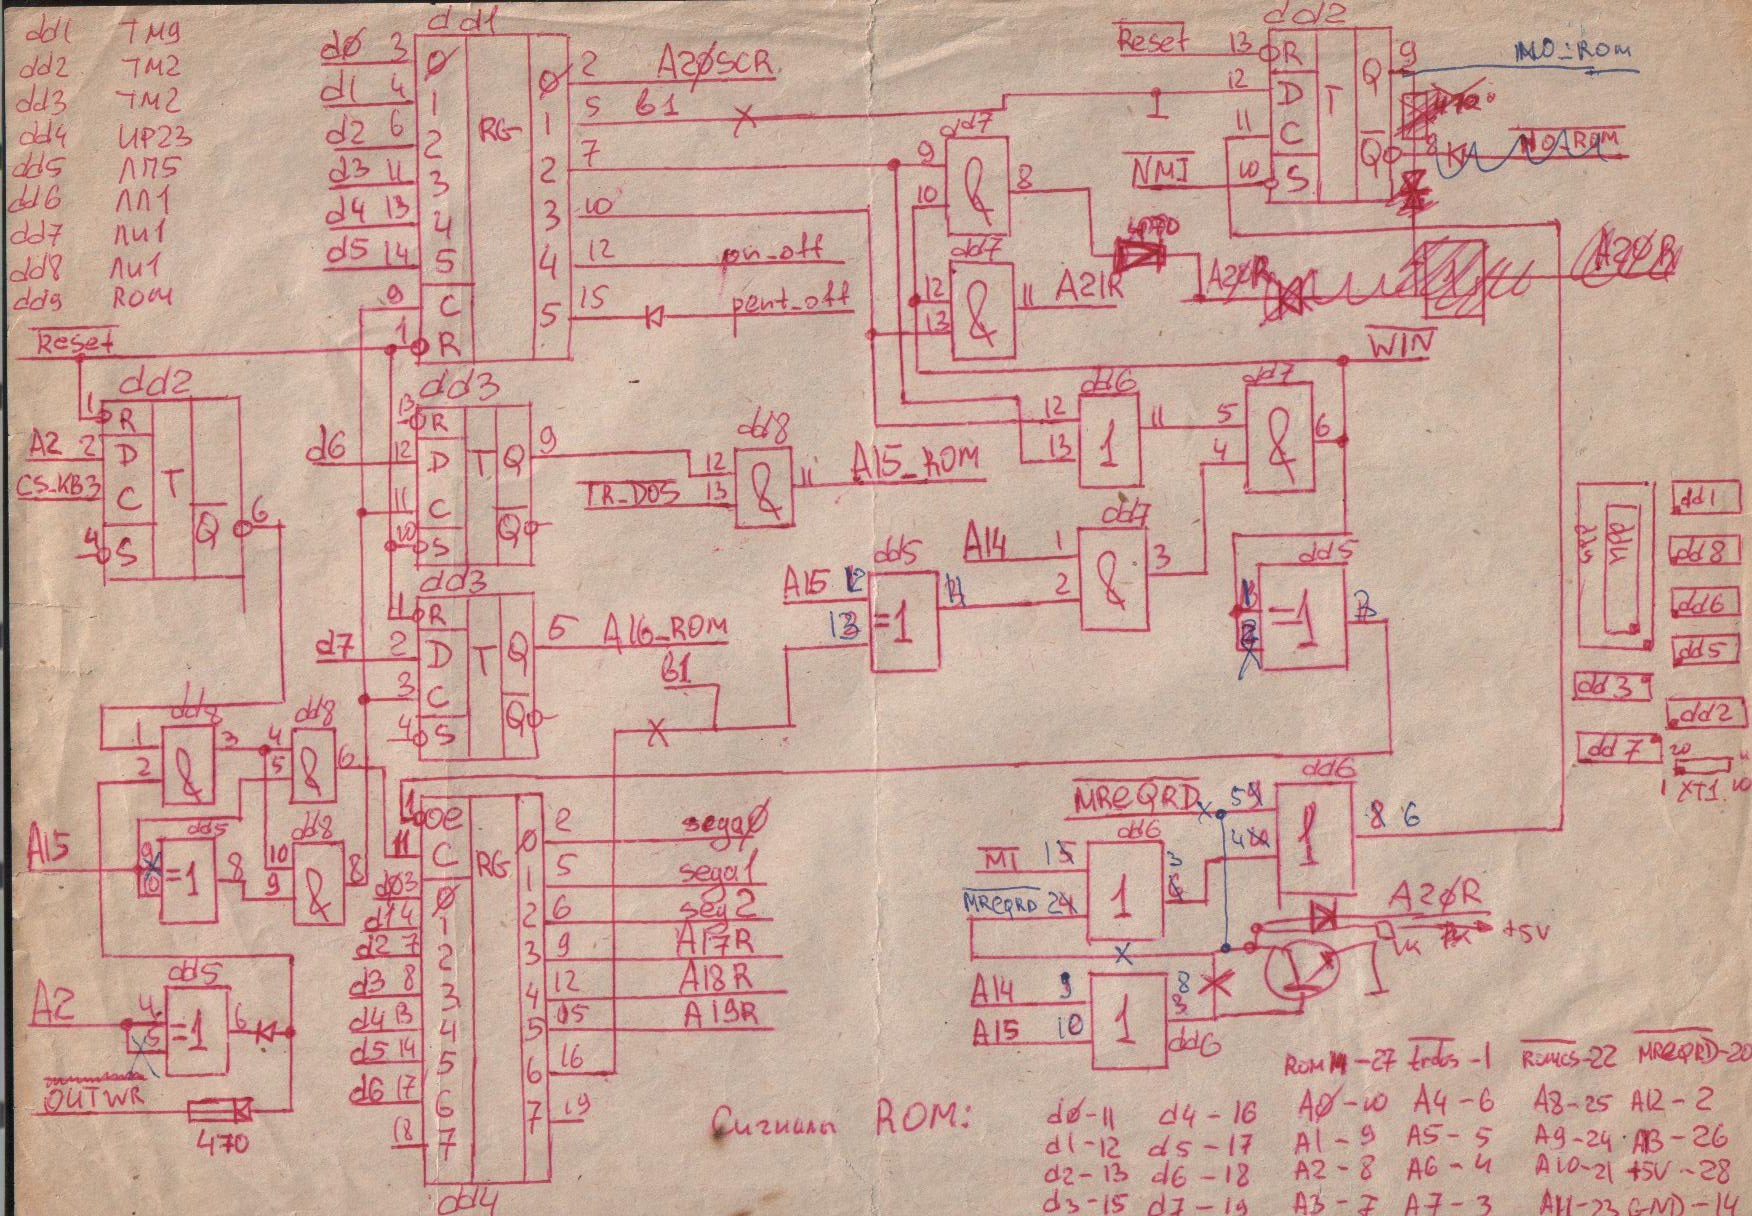 dd1 ТМ9
dd2 ТМ2
dd3 ТМ2
dd4 ИР23
dd5 ЛП5
dd6 ЛЛ1
dd7 ЛИ1
dd8 ЛИ1
dd9 ROM
dd1
d0 3 0
d1 4 1
d2 6 2
d3 11 3
d4 13 4
d5 14 5
9 C
1 R
RG
0 2 A20SCR
1 5 B1
2 7
3 10
4 12 pn_off
5 15 pent_off
Reset
dd2
Reset 13 R
12 D
11 C
NMI 10 S
T
Q 9
Q 8
NO_ROM
470
dd7
9
10
& 8
dd7
12
13
& 11 A21R
A20R
WIN
dd2
1 R
A2 2 D
CS_KB 3 C
4 S
T
Q 6
dd3
13 R
d6 12 D
11 C
10 S
T Q 9
Q
dd3
1 R
d7 2 D
3 C
4 S
T Q 5 A16_ROM
Q
B1
dd8
12
TR_DOS 13
& 11 A15_ROM
dd6
12
13
1 11
dd7
5
4
& 6
dd7
A14 1
2
& 3
dd5
A15 12
13
=1 11
dd5
=1
dd8
1
2
& 3
dd8
4
5
& 6
A15
dd5
9
10
=1 8
dd8
10
9
& 8
dd5
A2 4
5
=1 6
OUTWR
470
1 OE
11 C
d0 3 0
d1 4 1
d2 7 2
d3 8 3
d4 13 4
d5 14 5
d6 17 6
18 7
RG
0 2 sega0
1 5 sega1
2 6 seg2
3 9 A17R
4 12 A18R
5 15 A19R
6 16
7 19
dd4
dd6
MREQRD 5
4
1 8 6
dd6
M1 1
MREQRD 2
1 3
A14 9
A15 10
1 8
dd6
A20R
+5V
dd9
dd4
dd1
dd8
dd6
dd5
dd3
dd2
dd7
20 11
1 XT1 10
Сигналы ROM:
ROM -27 trdos -1 Romcs-22 MREQRD-20
d0-11 d4-16 A0-10 A4-6 A8-25 A12-2
d1-12 d5-17 A1-9 A5-5 A9-24 A13-26
d2-13 d6-18 A2-8 A6-4 A10-21 +5V-28
d3-15 d7-19 A3-7 A7-3 A11-23 GND-14